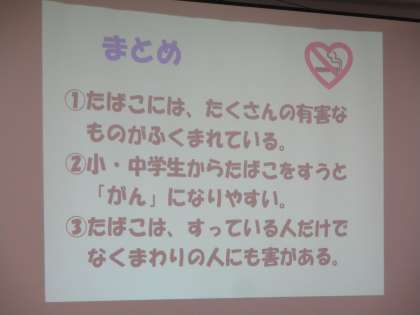 まとめ
①たばこには、たくさんの有害な
ものがふくまれている。
②小・中学生からたばこをすうと
「がん」になりやすい。
③たばこは、すっている人だけで
なくまわりの人にも害がある。